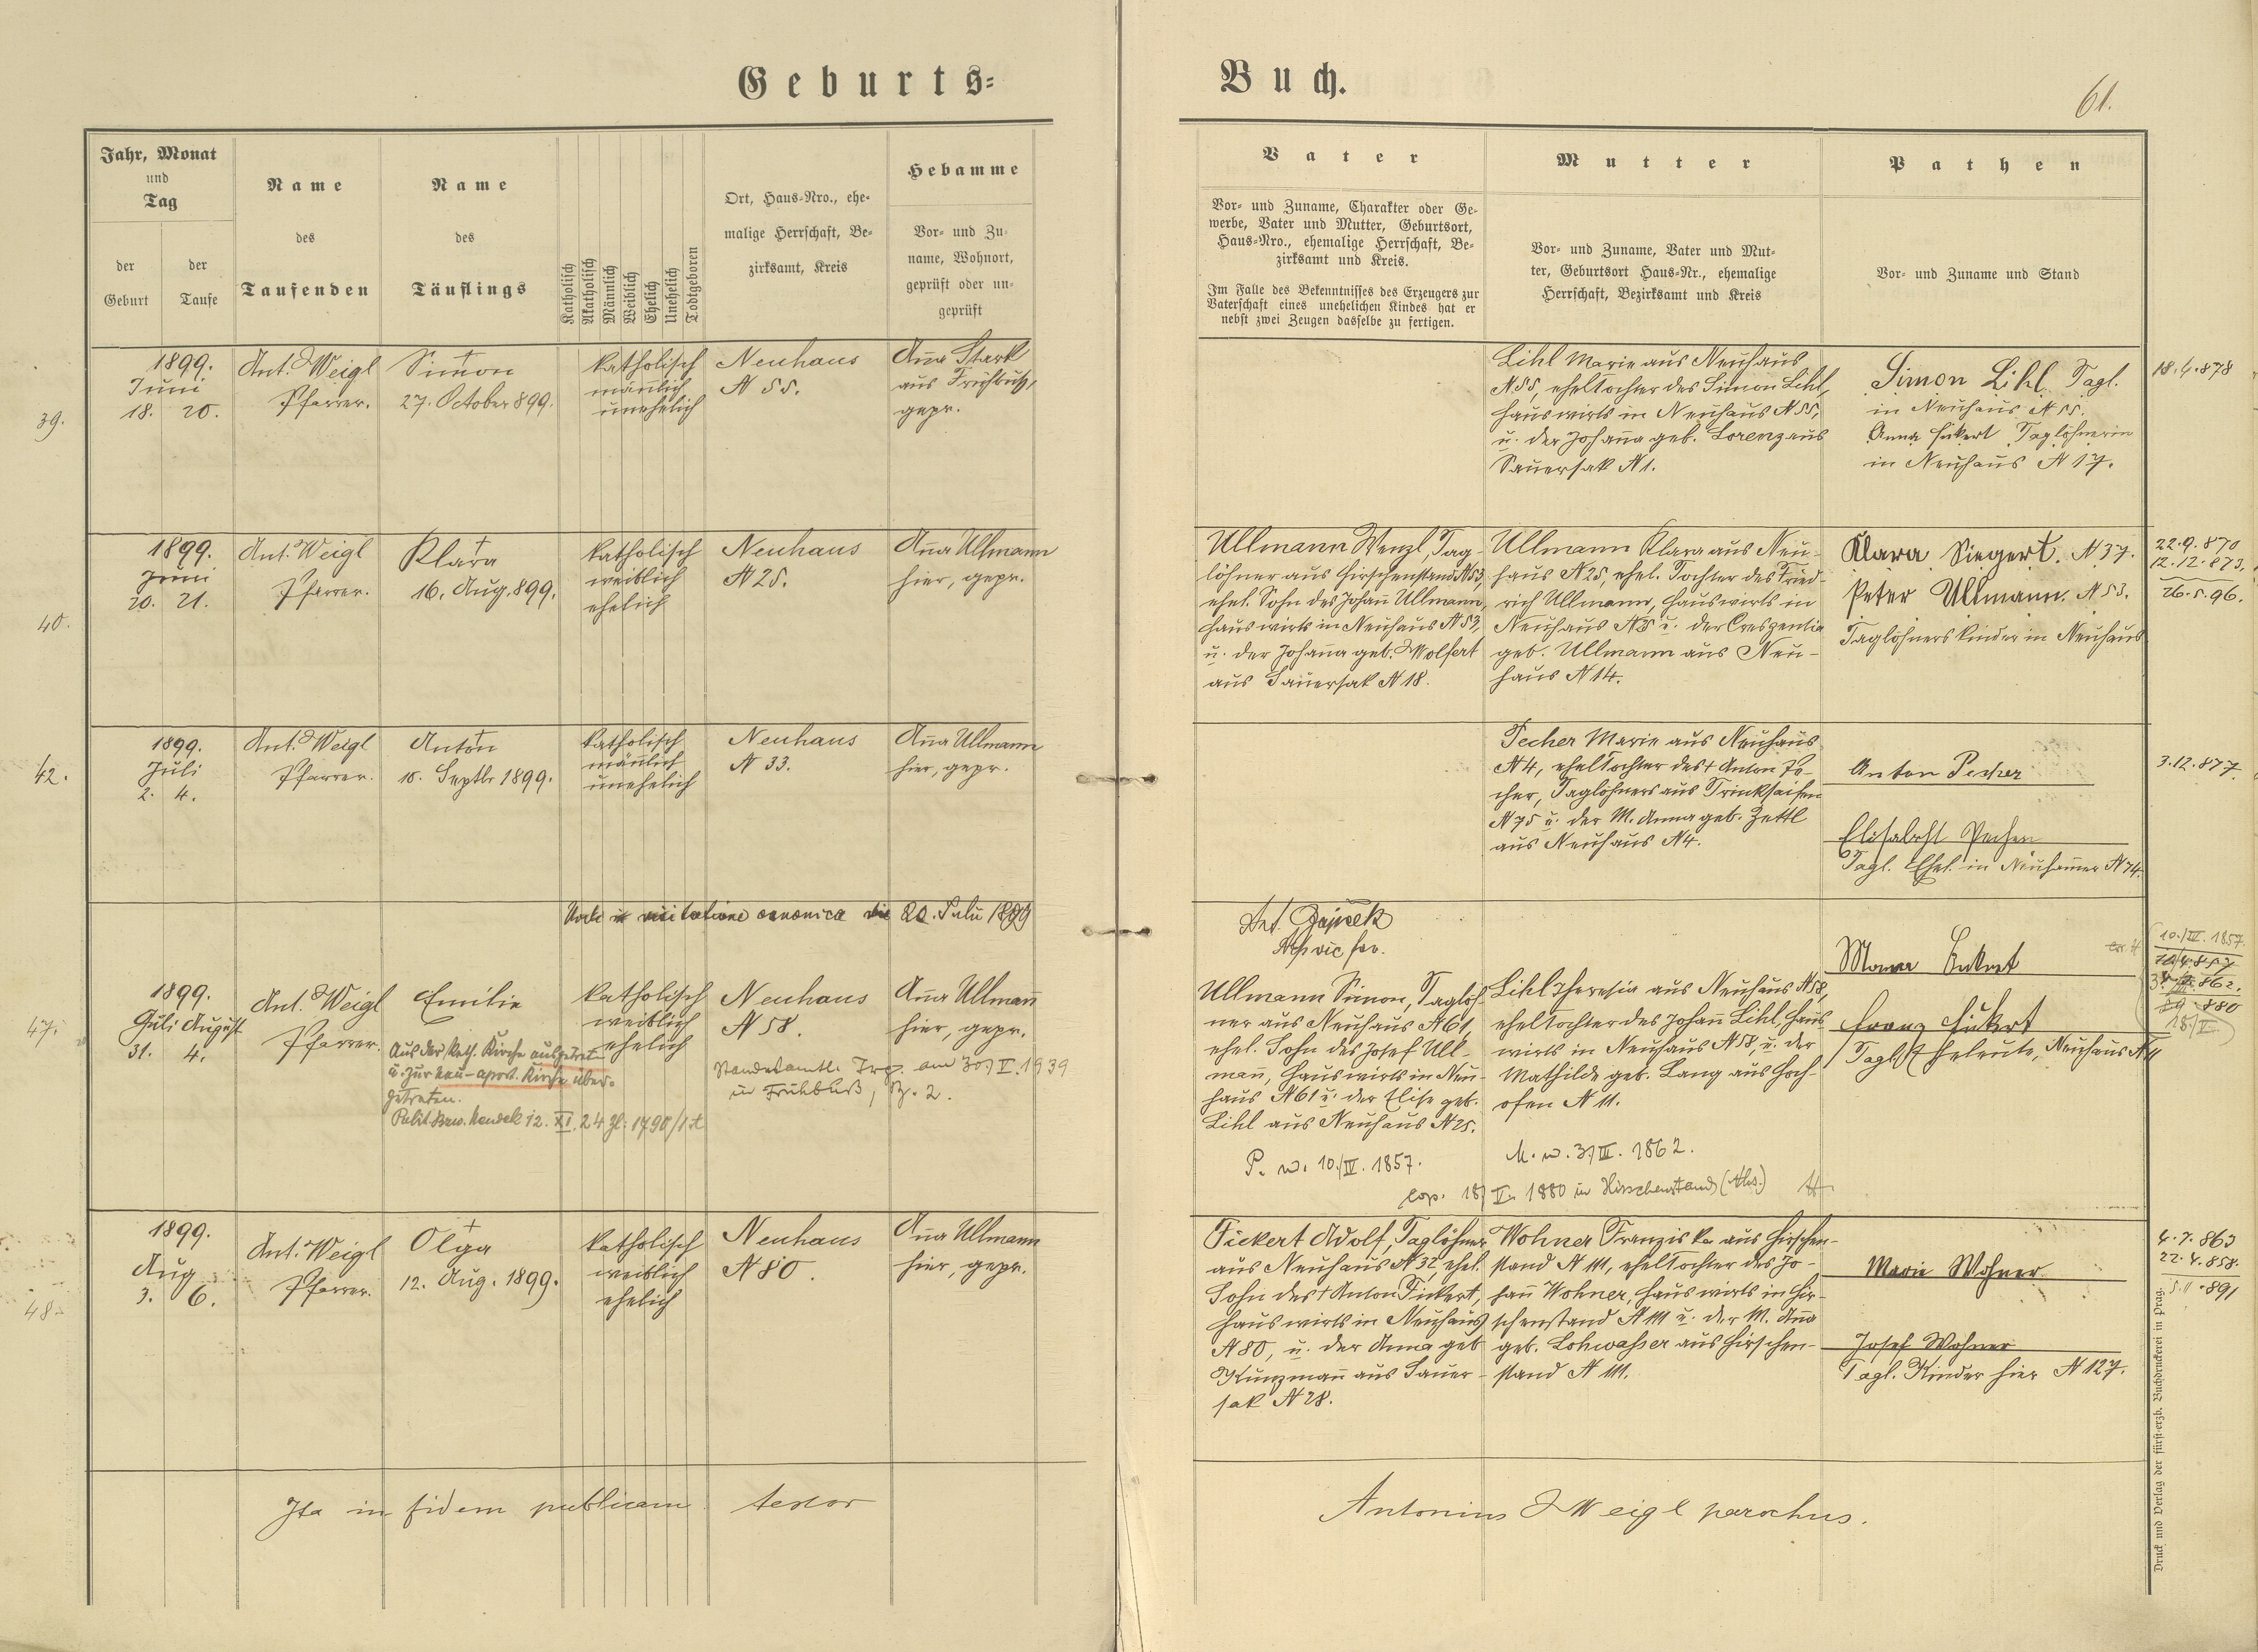 Geburts=
Buch.
61.
Jahr, Monat
und
Tag
der
Geburt
der
Taufe
Name
des
Taufenden
Name
des
Täuflings
Katholisch
Akatholisch
Männlich
Weiblich
Ehelich
Unehelich
Todtgeboren
Ort, Haus=Nro., ehe=
malige Herrschaft, Be=
zirksamt, Kreis
Hebamme
Vor= und Zu=
name, Wohnort,
geprüft oder un=
geprüft
Vater
Vor= und Zuname, Charakter oder Ge=
werbe, Vater und Mutter, Geburtsort,
Haus=Nro., ehemalige Herrschaft, Be=
zirksamt und Kreis.
Im Falle des Bekenntnisses des Erzeugers zur
Vaterschaft eines unehelichen Kindes hat er
nebst zwei Zeugen dasselbe zu fertigen.
Mutter
Vor= und Zuname, Vater und Mut=
ter, Geburtsort Haus=Nr., ehemalige
Herrschaft, Bezirksamt und Kreis
Pathen
Vor= und Zuname und Stand
39.
1899.
Juni
18. 20.
Ant. Weigl
Pfarrer.
Simon
27. October 899.
katholisch
männlich
unehelich
Neuhaus
N 55.
Aña Stark
aus Frühbuß,
gepr.
Lihl Marie aus Neuhaus
N 55, ehel Tochter des Simon Lihl,
Hauswirts in Neuhaus N 55,
u. der Johaña geb. Lorenz aus
Sauersak N 1.
Simon Lihl Tagl.
in Neuhaus N 55.
Anna Fickert Taglöhnerin
in Neuhaus N 17.
18.4.878
40.
1899.
Juni
20. 21.
Ant. Weigl
Pfarrer.
Klara
16. Aug. 899.
katholisch
weiblich
ehelich
Neuhaus
N 25.
Aña Ullmann
hier, gepr.
Ullmann Wenzl, Tag-
löhner aus Hirschenstand N 53,
ehel. Sohn des Johañ Ullmann,
Hauswirts in Neuhaus N 53,
u. der Johaña geb. Wolfert
aus Sauersak N 18.
Ullmann Klara aus Neu-
haus N 25, ehel. Tochter des Fried-
rich Ullmann, Hauswirts in
Neuhaus N 25 u. der Creszentia
geb. Ullmann aus Neu-
haus N 14.
Klara Siegert. N 37.
Peter Ullmann. N 53.
Taglöhnerskinder in Neuhaus
22.9.870
12.12.873.
26.5.96.
42.
1899.
Juli
2. 4.
Ant. Weigl
Pfarrer.
Anton
15. Septbr 1899.
katholisch
mäñlich
unehelich
Neuhaus
N 33.
Aña Ullmann
hier, gepr.
Pecher Marie aus Neuhaus
N 4, ehel Tochter des + Anton Pe-
cher, Taglöhners aus Trinksaifen
N 75 u. der M. Anna geb. Zettl
aus Neuhaus N 4.
Anton Pecher
Elisabeht Pecher
Tagl. Ehel. in Neuhammer N 74.
3.12.877.
in visitatione canonica die 20. Julii 1899
Ant. Gajicek
47.
1899.
Juli August
31. 4.
Ant. Weigl
Pfarrer.
Emilie
Aus der kath. Kirche ausgetreten
u. zur neu-apost. Kirche über-
getreten.
Polit. Bzw. Neudek 12. XI. 24 Zl. 1790/1
katholisch
weiblich
ehelich
Neuhaus
N 58.
Aña Ullmañ
hier, gepr.
Standesamtl. am 30./V. 1939
in Frühbuß, Z. 2.
Ullmann Simon, Taglöh-
ner aus Neuhaus N 61,
ehel. Sohn des Josef Ull-
mañ, Hauswirts in Neu-
haus N 61 u. der Elise geb.
Lihl aus Neuhaus N 25.
P. n. 10./IV. 1857.
Lihl Theresia aus Neuhaus N 58,
ehel Tochter des Johañ Lihl, Haus-
wirts in Neuhaus N 58, u. der
Mathilde geb. Lang aus Hoch-
ofen N 11.
M. n. 3./III. 1862.
cop. 18./V. 1880 in Hirschenstand
Franz Fickert
Tagl. Eheleute, Neuhaus
10./IV. 1857.
48.
1899.
Aug
3. 6.
Ant. Weigl
Pfarrer.
Olga
12. Aug. 1899.
katholisch
weiblich
ehelich
Neuhaus
N 80.
Aña Ullmann
hier, gepr.
Fickert Adolf, Taglöhner
aus Neuhaus N 32, ehel.
Sohn des + Anton Fickert,
Hauswirts in Neuhaus
N 80, u. der Anna geb
Kunzmañ aus Sauer-
sak N 28.
Wohner Franziska aus Hirschen-
stand N 111, ehel Tochter des Jo-
hañ Wohner, Hauswirts in Hir-
schenstand N 111 u. der M. Aña
geb. Lohwasser aus Hirschen-
stand N 111.
Marie Wohner
Josef Wohner
Tagl. Kinder hier N 127.
4.7.863
22.4.858.
5.11.891
Ita in fidem publicam testor
Antonius Weigl parochus.
Druck und Verlag der fürst=erzb. Buchdruckerei in Prag.